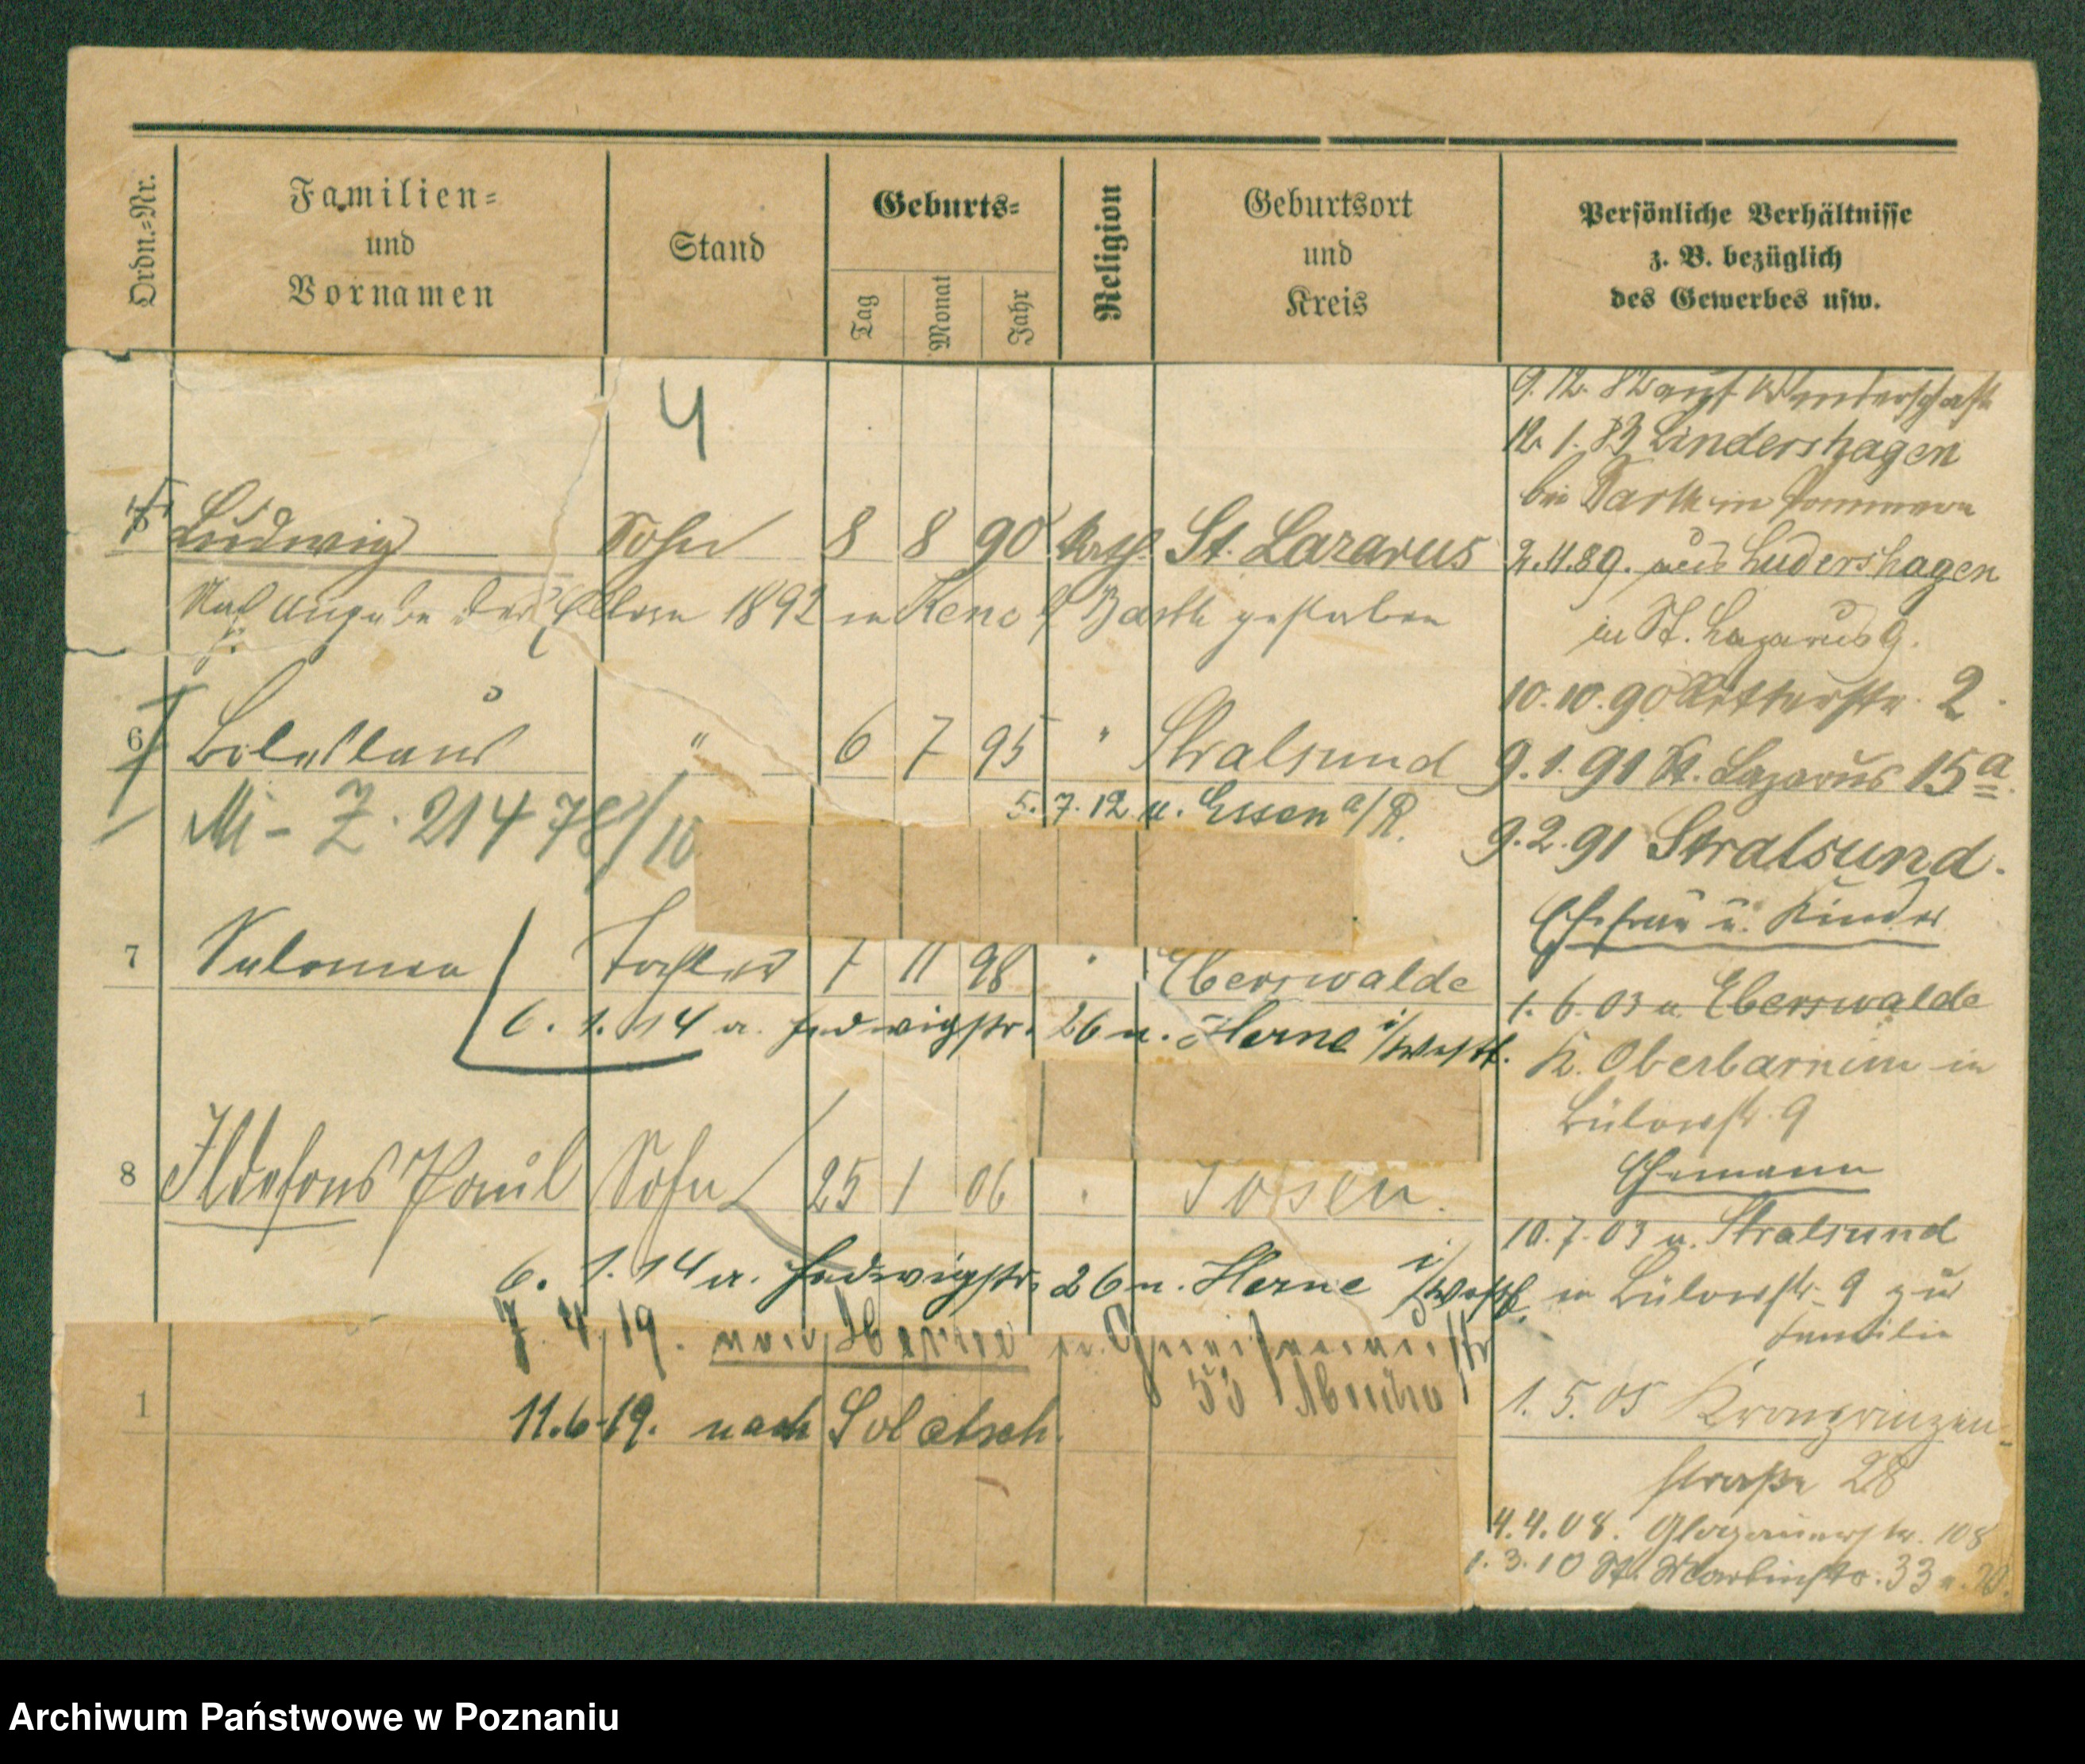 Ordn.-Nr.
Familien-
und
Vornamen
Stand
Geburts-
Tag
Monat
Jahr
Religion
Geburtsort
und
Kreis
Persönliche Verhältnisse
z. B. bezüglich
des Gewerbes usw.
4
5 Ludwig Sohn 8 8 90 St. Lazarus
Nach Angabe der 1892 in Barth gestorben
6 Boleslaus " 6 7 95 " Stralsund
5.7.12 n. Essen a/R.
Mi - Z. 21478/10
7 Salomea Tochter 7 11 98 " Eberswalde
6. 1. 14 a. Hedwigstr. 26 n. Herne i/Westf.
8 Ildefons Paul Sohn 25 1 06 " Posen.
6. 1. 14 a. Hedwigstr. 26 n. Herne i/Westf.
7. 4. 19. von Herne n. Gneisenaustr
53
1
11.6.19. nach Solatsch.
9. 12. 82 auf Wanderschaft
12. 1. 83 Lindershagen
bei Barth in Pommern
2.11.89. aus Ludershagen
in St. Lazarus 9.
10.10.90 Ritterstr. 2
9.1.91 St. Lazarus 15a
9.2.91 Stralsund.
Ehefrau u. Kinder
1. 6. 03 a. Eberswalde
K. Oberbarnim in
Bülowstr. 9
Ehemann
10.7.03 a. Stralsund
in Bülowstr. 9 zur
Familie
1. 5. 05 Kronprinzen-
straße 28
4.4.08. Glogauerstr. 108
1.3.10 St. Martinstr. 33
Archiwum Państwowe w Poznaniu